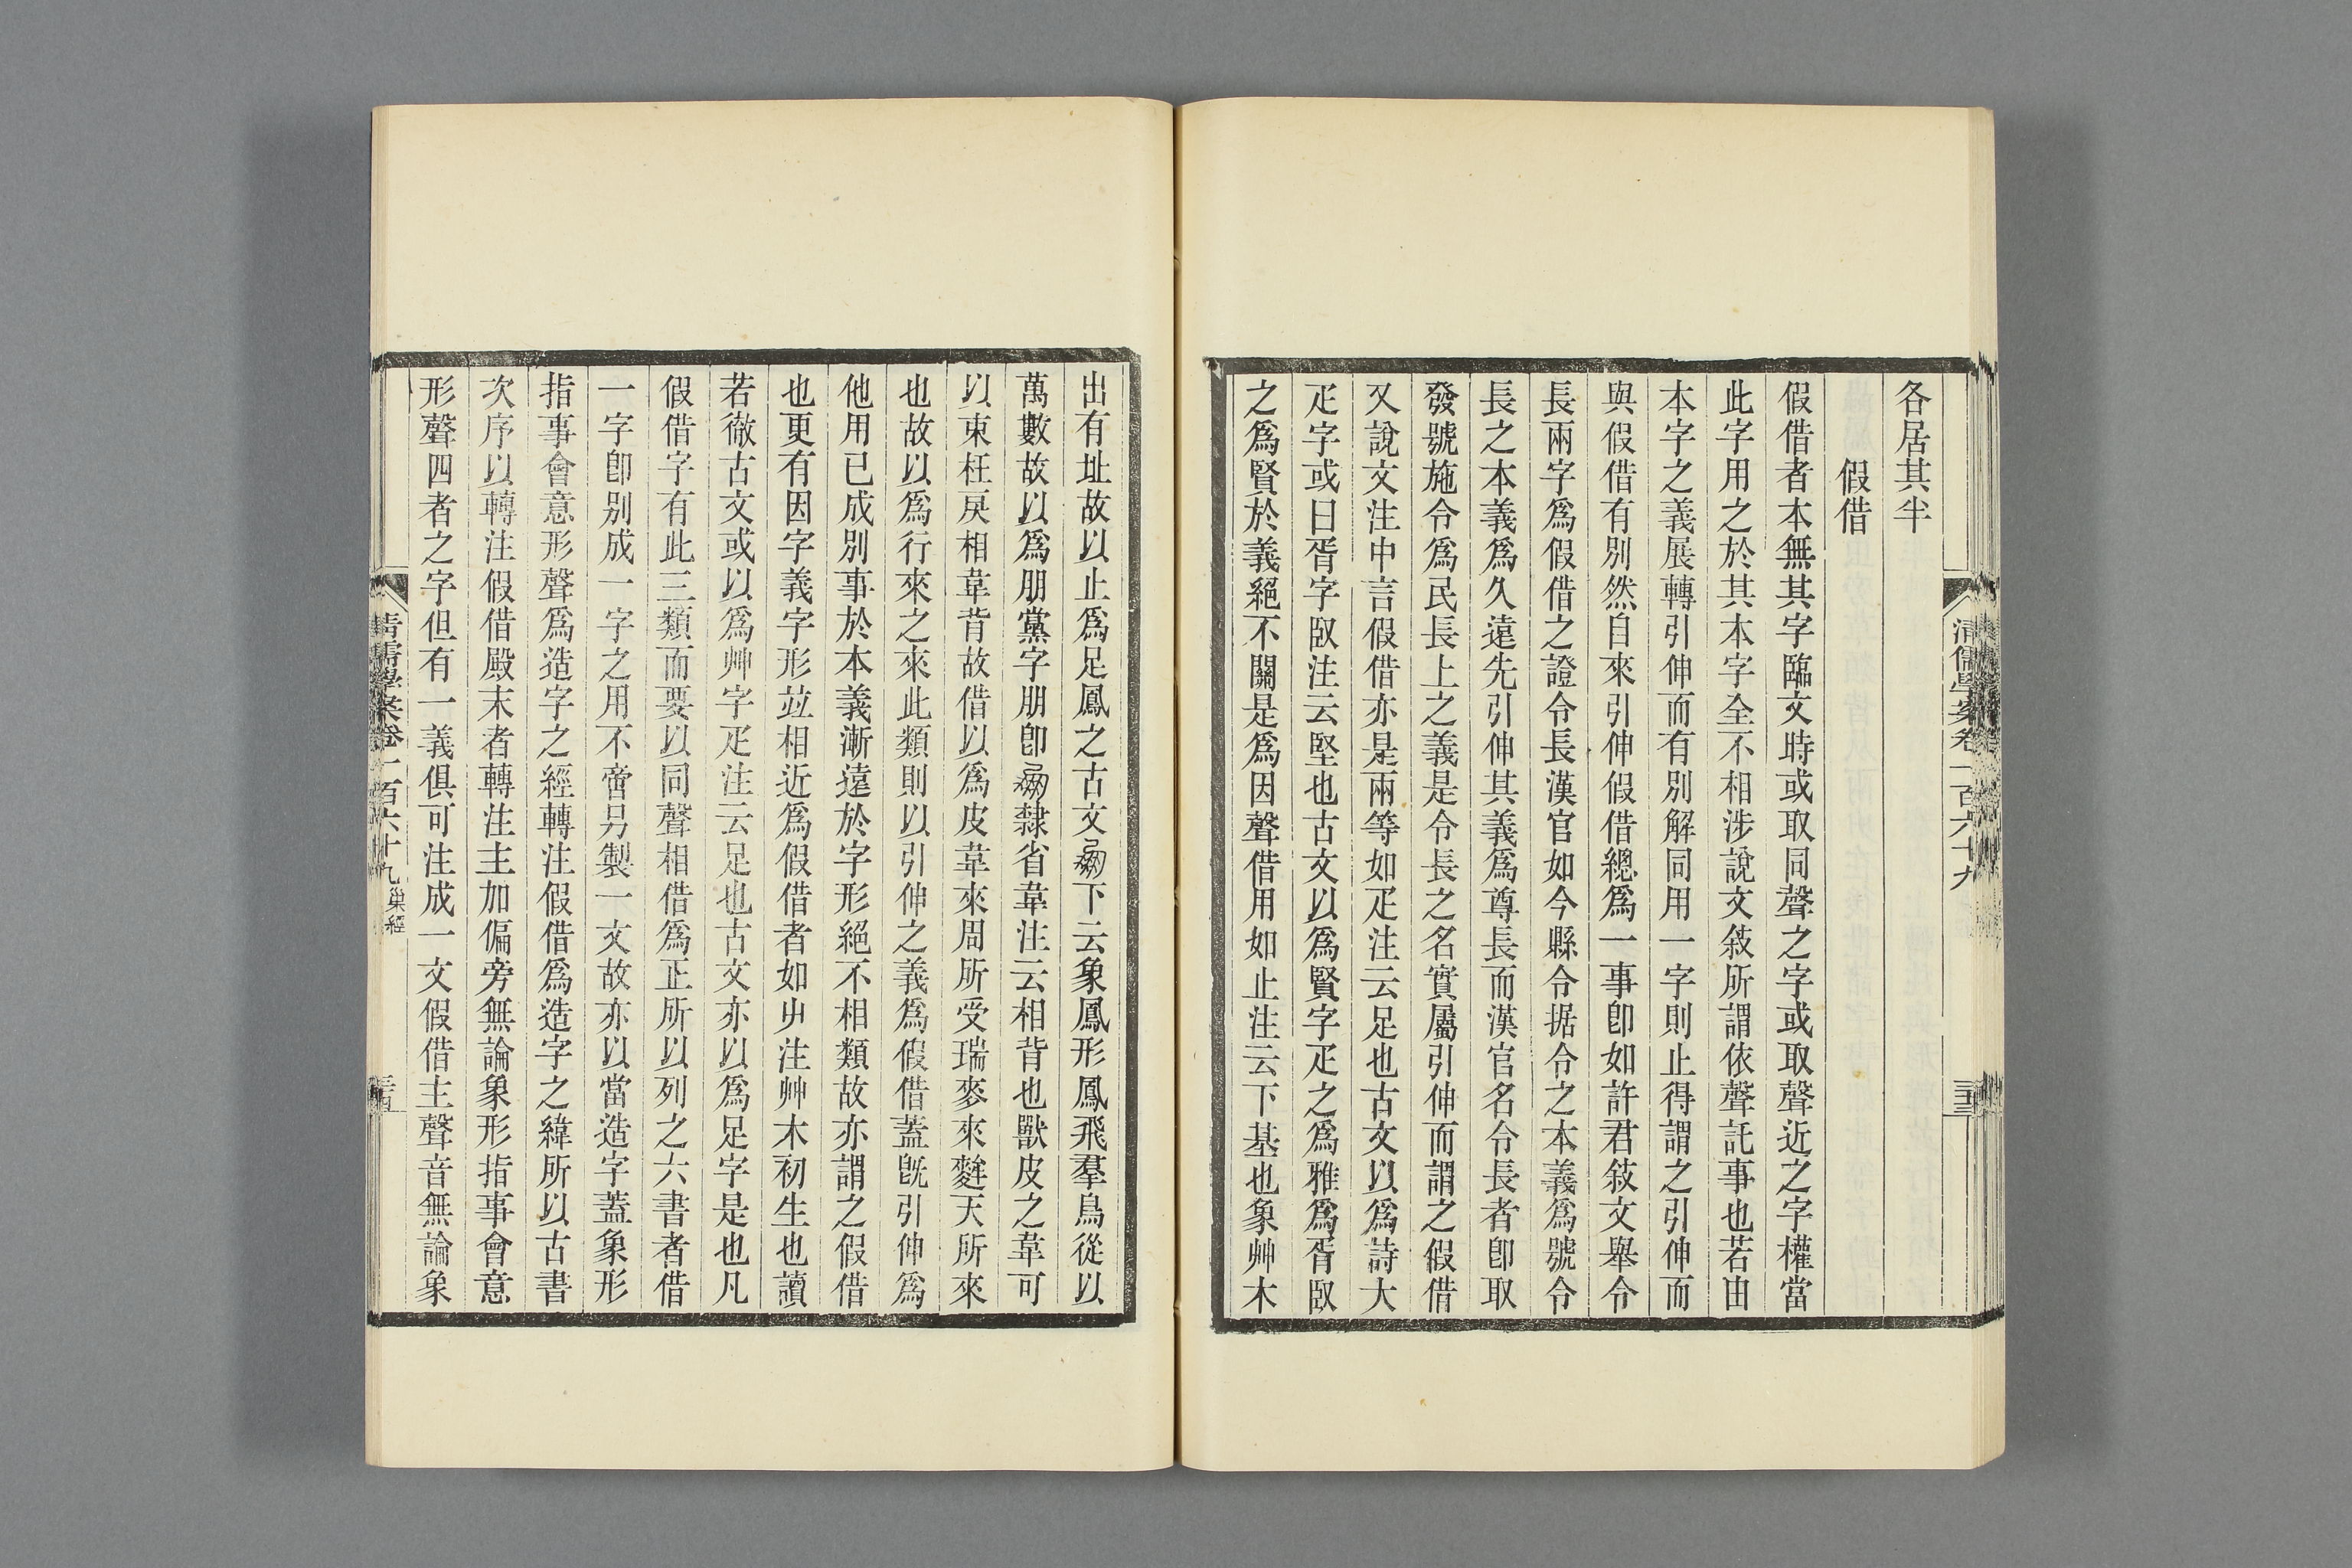 各居其半
假借
假借者本無其字臨文時或取同聲之字或取聲近之字權當
此字用之於其本字全不相涉說文敘所謂依聲託事也若由
本字之義展轉引伸而有別解同用一字則止得謂之引伸而
與假借有別然自來引伸假借總爲一事卽如許君敍文舉令
長兩字爲假借之證令長漢官如今縣令据令之本義爲號令
長之本義爲久遠先引伸其義爲尊長而漢官名令長者卽取
發號施令爲民長上之義是令長之名實屬引伸而謂之假借
又說文注中言假借亦是兩等如疋注云足也古文以爲詩大
疋字或曰胥字臤注云堅也古文以爲賢字疋之爲雅爲胥臤
之爲賢於義絕不關是爲因聲借用如止注云下基也象艸木
清儒學案卷一百六十九
三十三
出有址故以止爲足鳳之古文下云象鳳形鳳飛羣鳥從以
萬數故以爲朋黨字朋卽隸省韋注云相背也獸皮之韋可
以束枉戾相韋背故借以爲皮韋來周所受瑞麥來麰天所來
也故以爲行來之來此類則以引伸之義爲假借蓋旣引伸爲
他用已成別事於本義漸遠於字形絕不相類故亦謂之假借
也更有因字義字形竝相近爲假借者如屮注艸木初生也讀
若徹古文或以爲艸字疋注云足也古文亦以爲足字是也凡
假借字有此三類而要以同聲相借爲正所以列之六書者借
一字卽別成一字之用不啻另製一文故亦以當造字蓋象形
指事會意形聲爲造字之經轉注假借爲造字之緯所以古書
次序以轉注假借殿末者轉注主加偏旁無論象形指事會意
形聲四者之字但有一義俱可注成一文假借主聲音無論象
清儒學案卷一百六十九 巢經
三十四